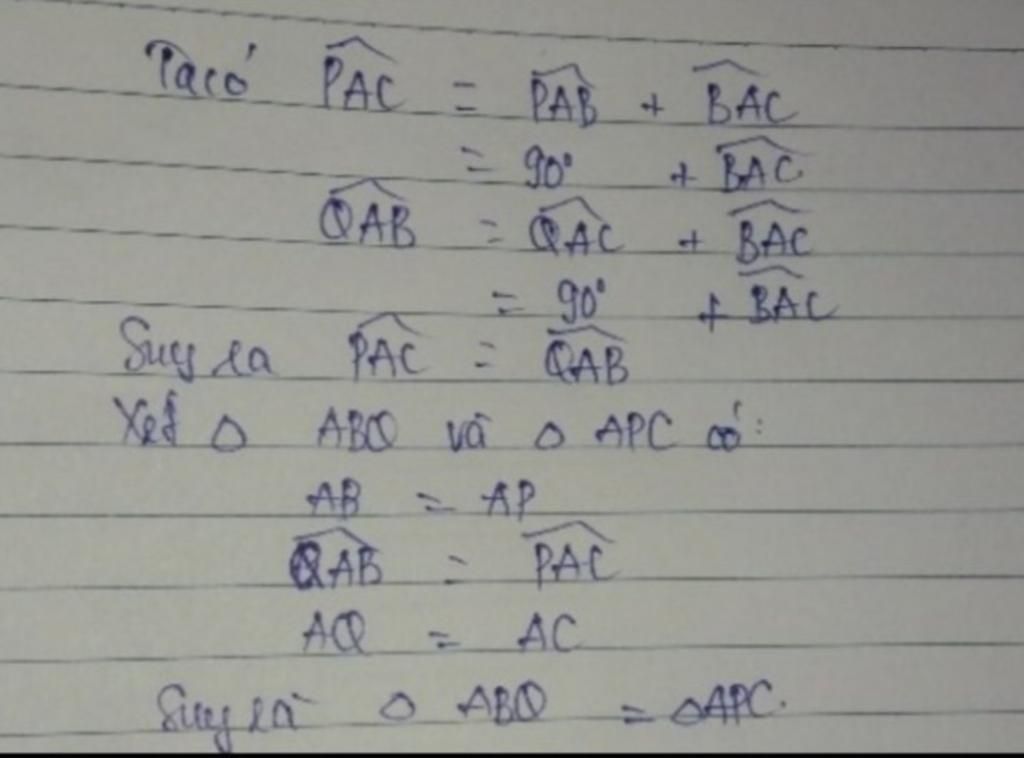 Ta có \widehat{PAC} = \widehat{PAB} + \widehat{BAC}
= 90° + \widehat{BAC}
\widehat{QAB} = \widehat{QAC} + \widehat{BAC}
= 90° + \widehat{BAC}
Suy ra \widehat{PAC} = \widehat{QAB}
Xét △ ABQ và △ APC có:
AB = AP
\widehat{QAB} = \widehat{PAC}
AQ = AC
Suy ra △ ABQ = △APC.